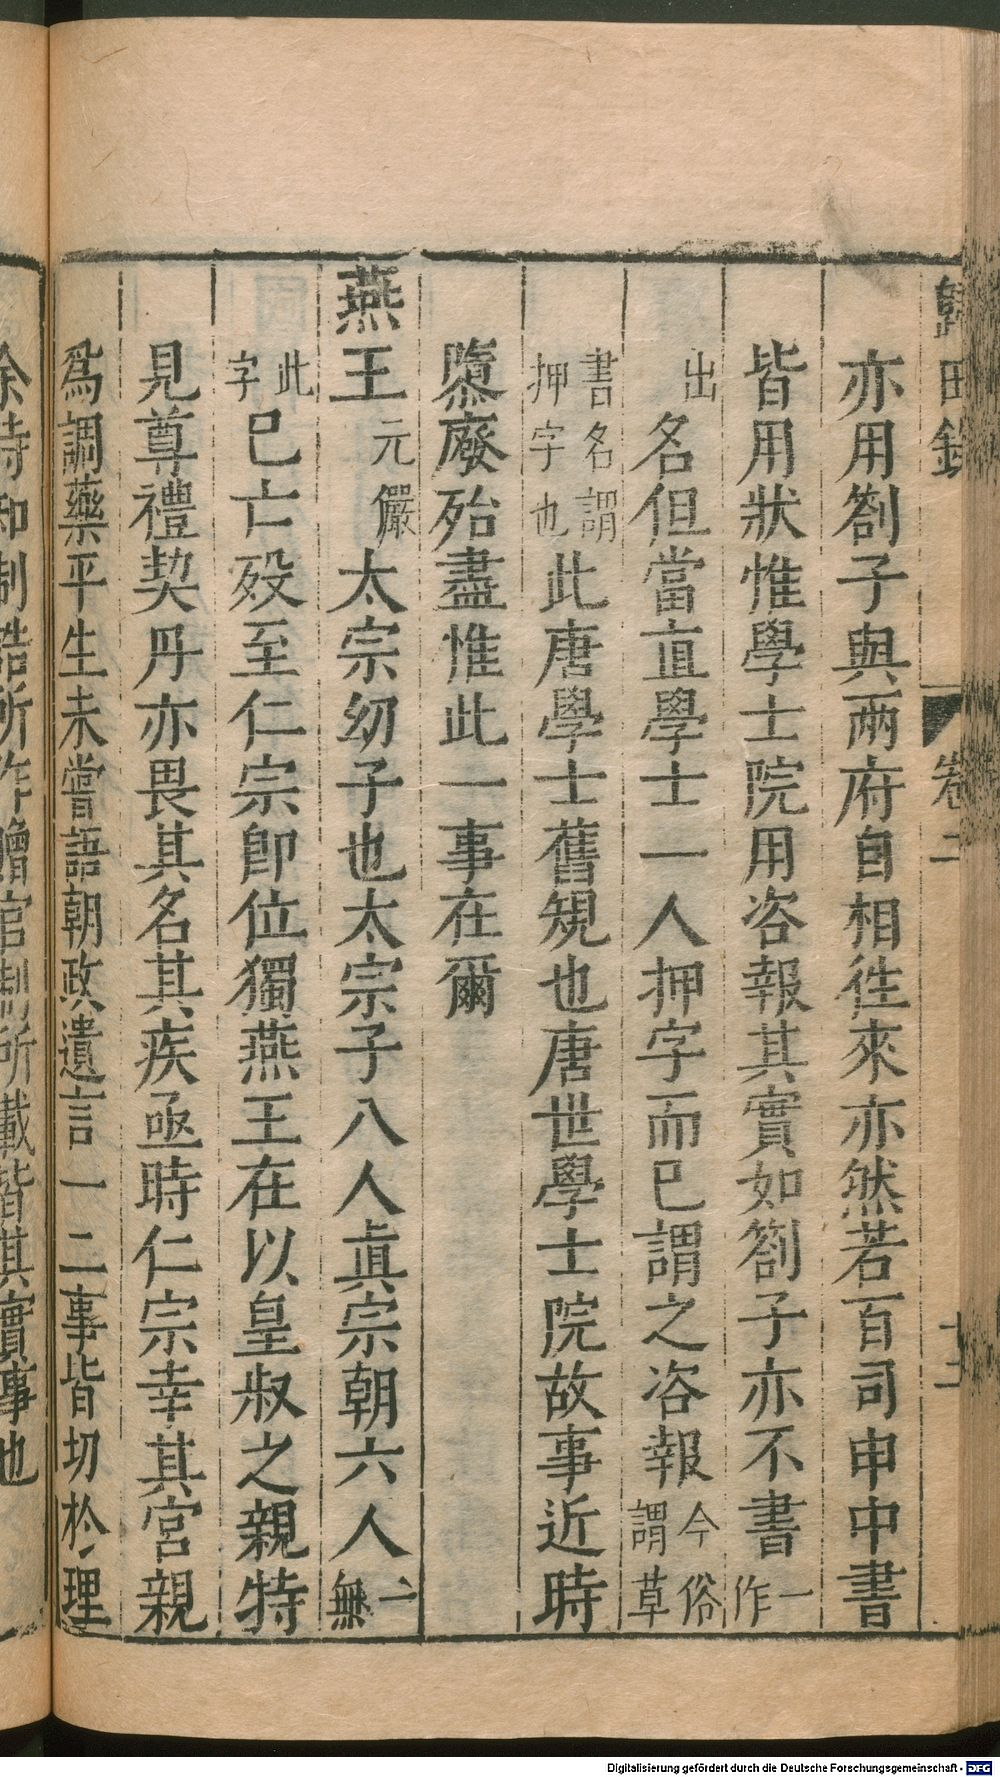 歸田錄 卷二 十二
亦用劄子與兩府自相徃來亦然若百司申中書
皆用狀惟學士院用咨報其實如劄子亦不書一作
出名但當直學士一人押字而已謂之咨報今俗謂草
書名謂押字也此唐學士舊規也唐世學士院故事近時
隳廢殆盡惟此一事在爾
燕王元儼太宗㓜子也太宗子八人眞宗朝六人一無
此字已亡歿至仁宗卽位獨燕王在以皇叔之親特
見尊禮契丹亦畏其名其疾亟時仁宗幸其宮親
爲調藥平生未嘗語朝政遺言一二事皆切於理
余時知制誥所作贈官制所載皆其實事也
Digitalisierung gefördert durch die Deutsche Forschungsgemeinschaft - DFG